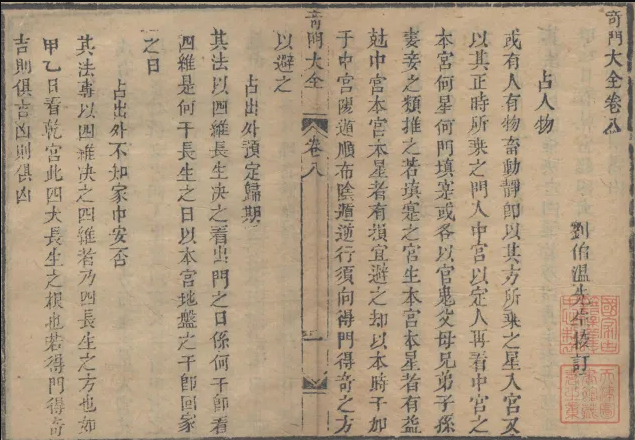 奇門大全卷八
劉伯溫先生校訂
占人物
或有人有物畜動靜即以其方所乘之星入宮又
以其正時所乘之門入中宮以定人再看中宮之
本宮何星何門填塞或各以官鬼父母兄弟子孫
妻妾之類推之若填塞之宮生本宮本星者有益
尅中宮本宮本星者有損宜避之却以本時干加
于中宮陽遁順布陰遁逆行須向得門得奇之方
奇門大全 卷八 一
以避之
占出外預定歸期
其法以四維長生決之看出門之日係何干即看
四維是何干長生之日以本宮地盤之干即回家
之日
占出外不知家中安否
其法專以四維決之四維者乃四長生之方也如
甲乙日看乾宮此四大長生之根也若得門得奇
吉則俱吉凶則俱凶